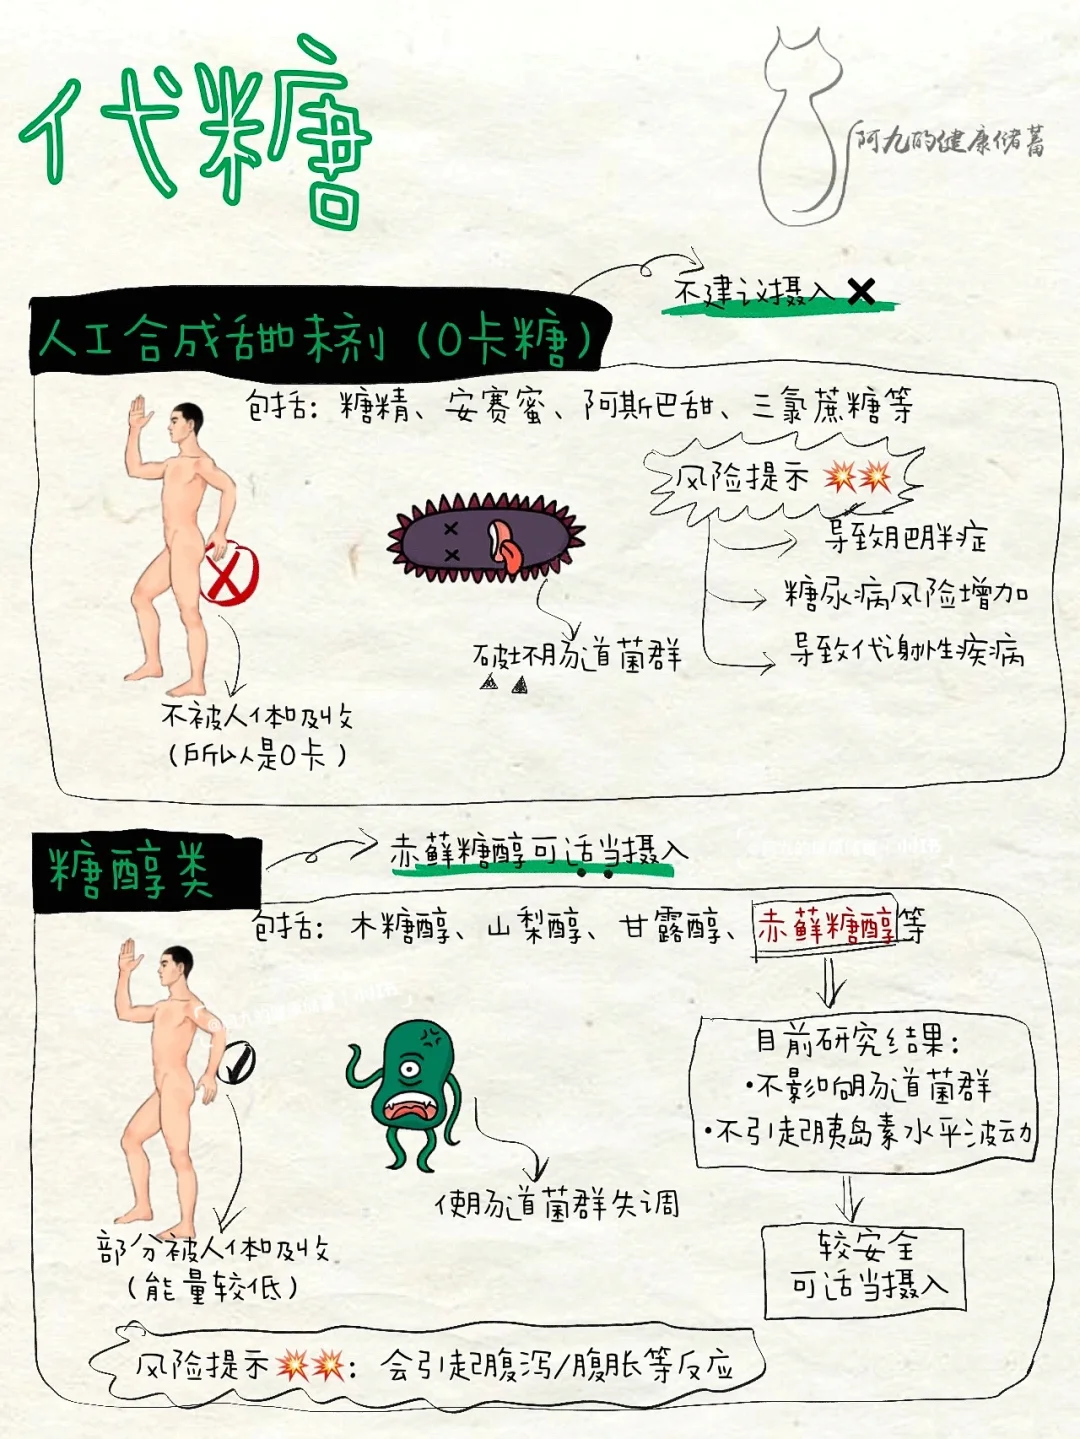 代糖
阿九的健康储蓄
不建议摄入
人工合成甜味剂（0卡糖）
包括：糖精、安赛蜜、阿斯巴甜、三氯蔗糖等
风险提示
导致肥胖症
糖尿病风险增加
导致代谢性疾病
破坏肠道菌群
不被人体吸收
（所以是0卡）
糖醇类
赤藓糖醇可适当摄入
包括：木糖醇、山梨醇、甘露醇、赤藓糖醇等
目前研究结果：
·不影响肠道菌群
·不引起胰岛素水平波动
使肠道菌群失调
较安全
可适当摄入
部分被人体吸收
（能量较低）
风险提示：会引起腹泻/腹胀等反应